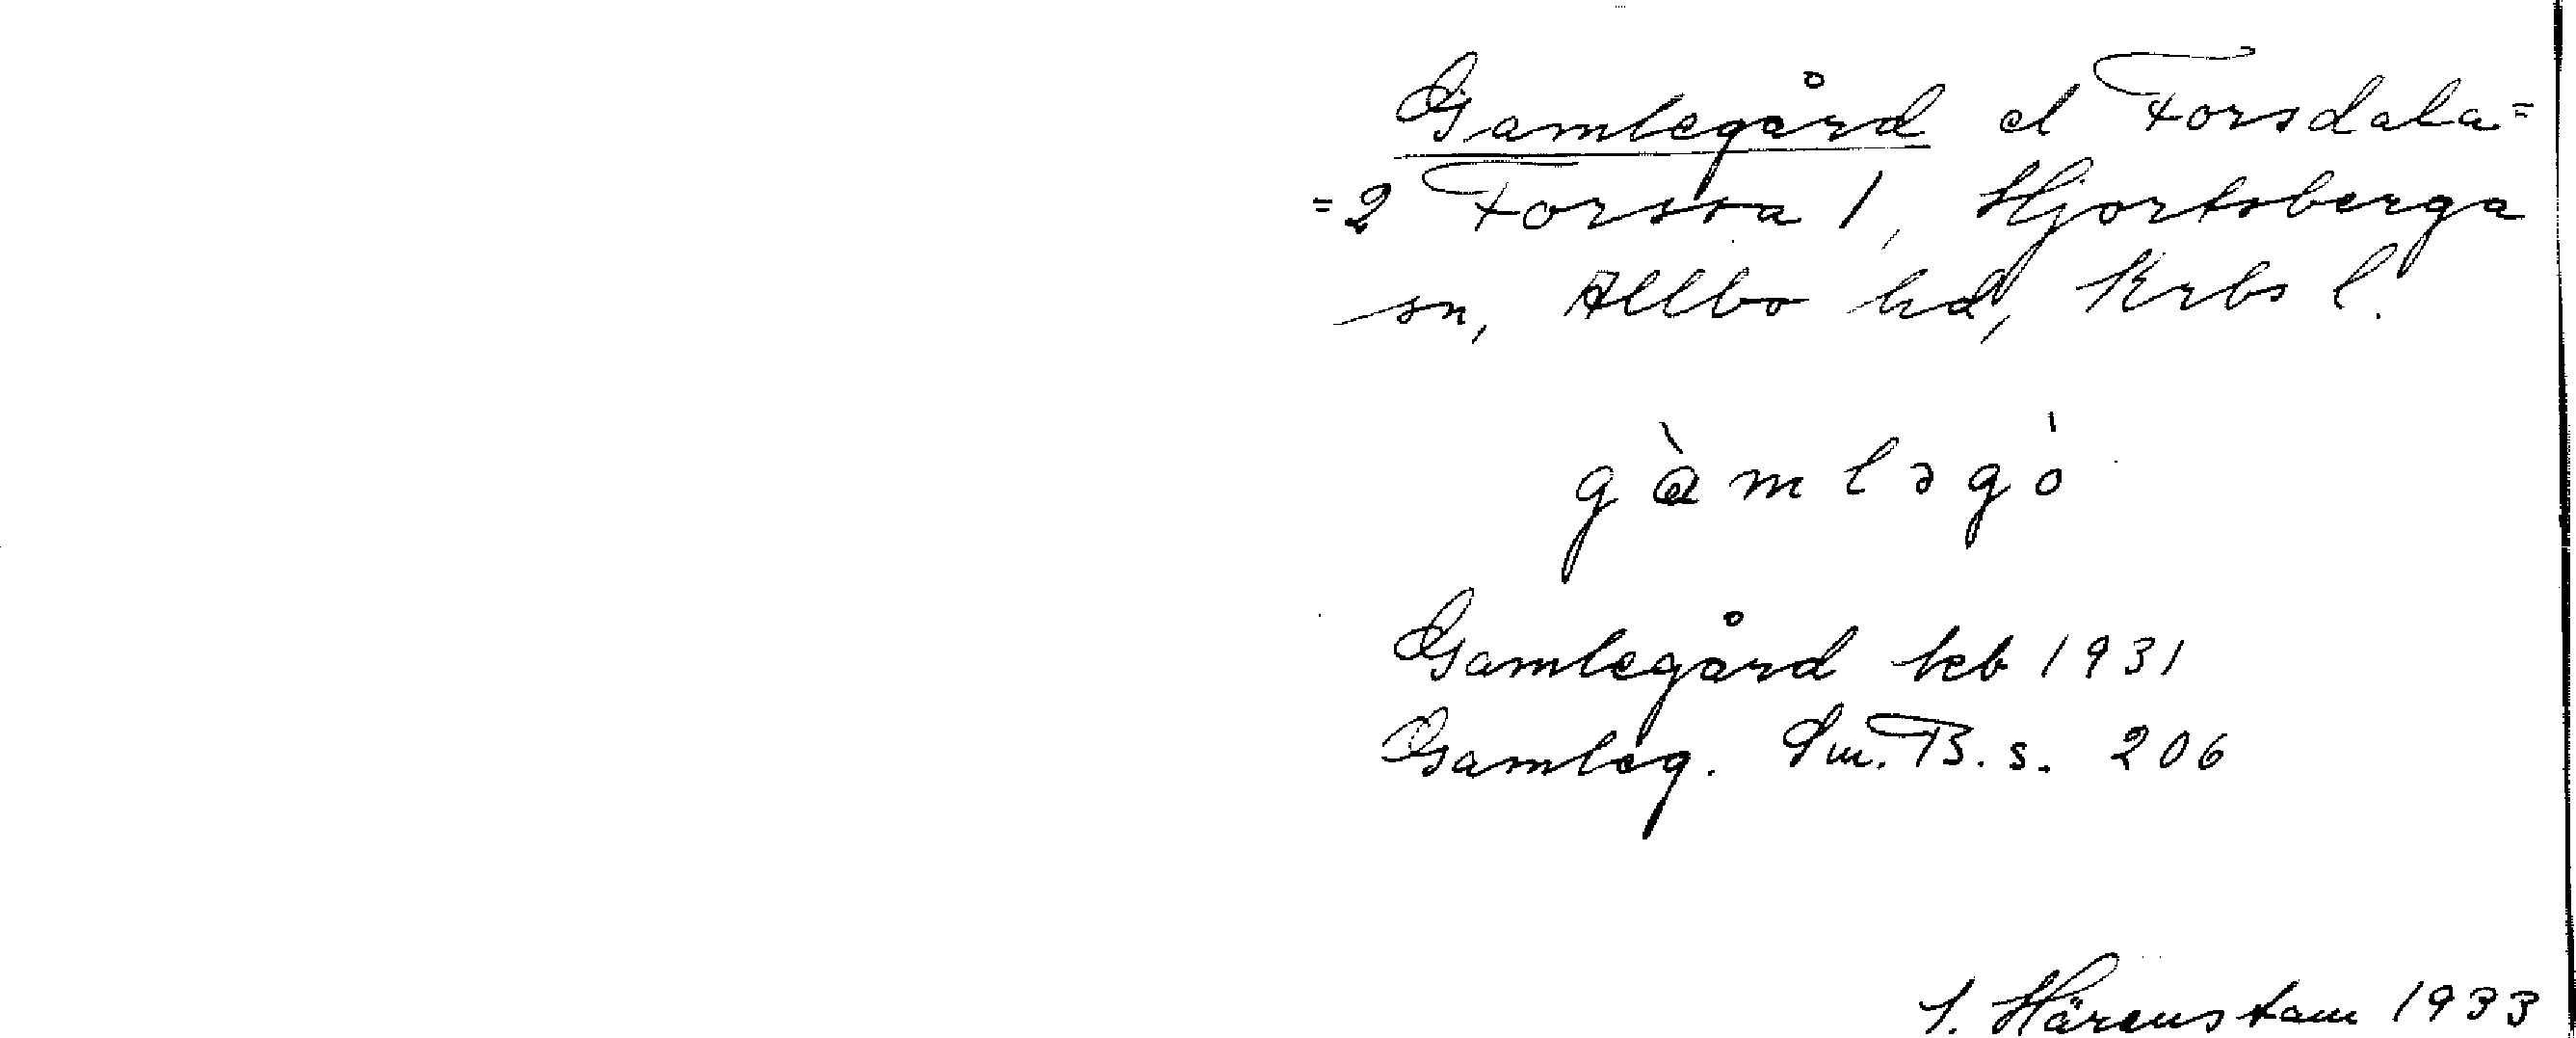 Gamlegård el Forsdala=
=2 Forssa 1, Hjortsberga
sn, Allbo hd, Krbs l.
gàmləgó
Gamlegård keb 1931
Gamleg. Sm. B. s. 206
J. Härenstam 1933